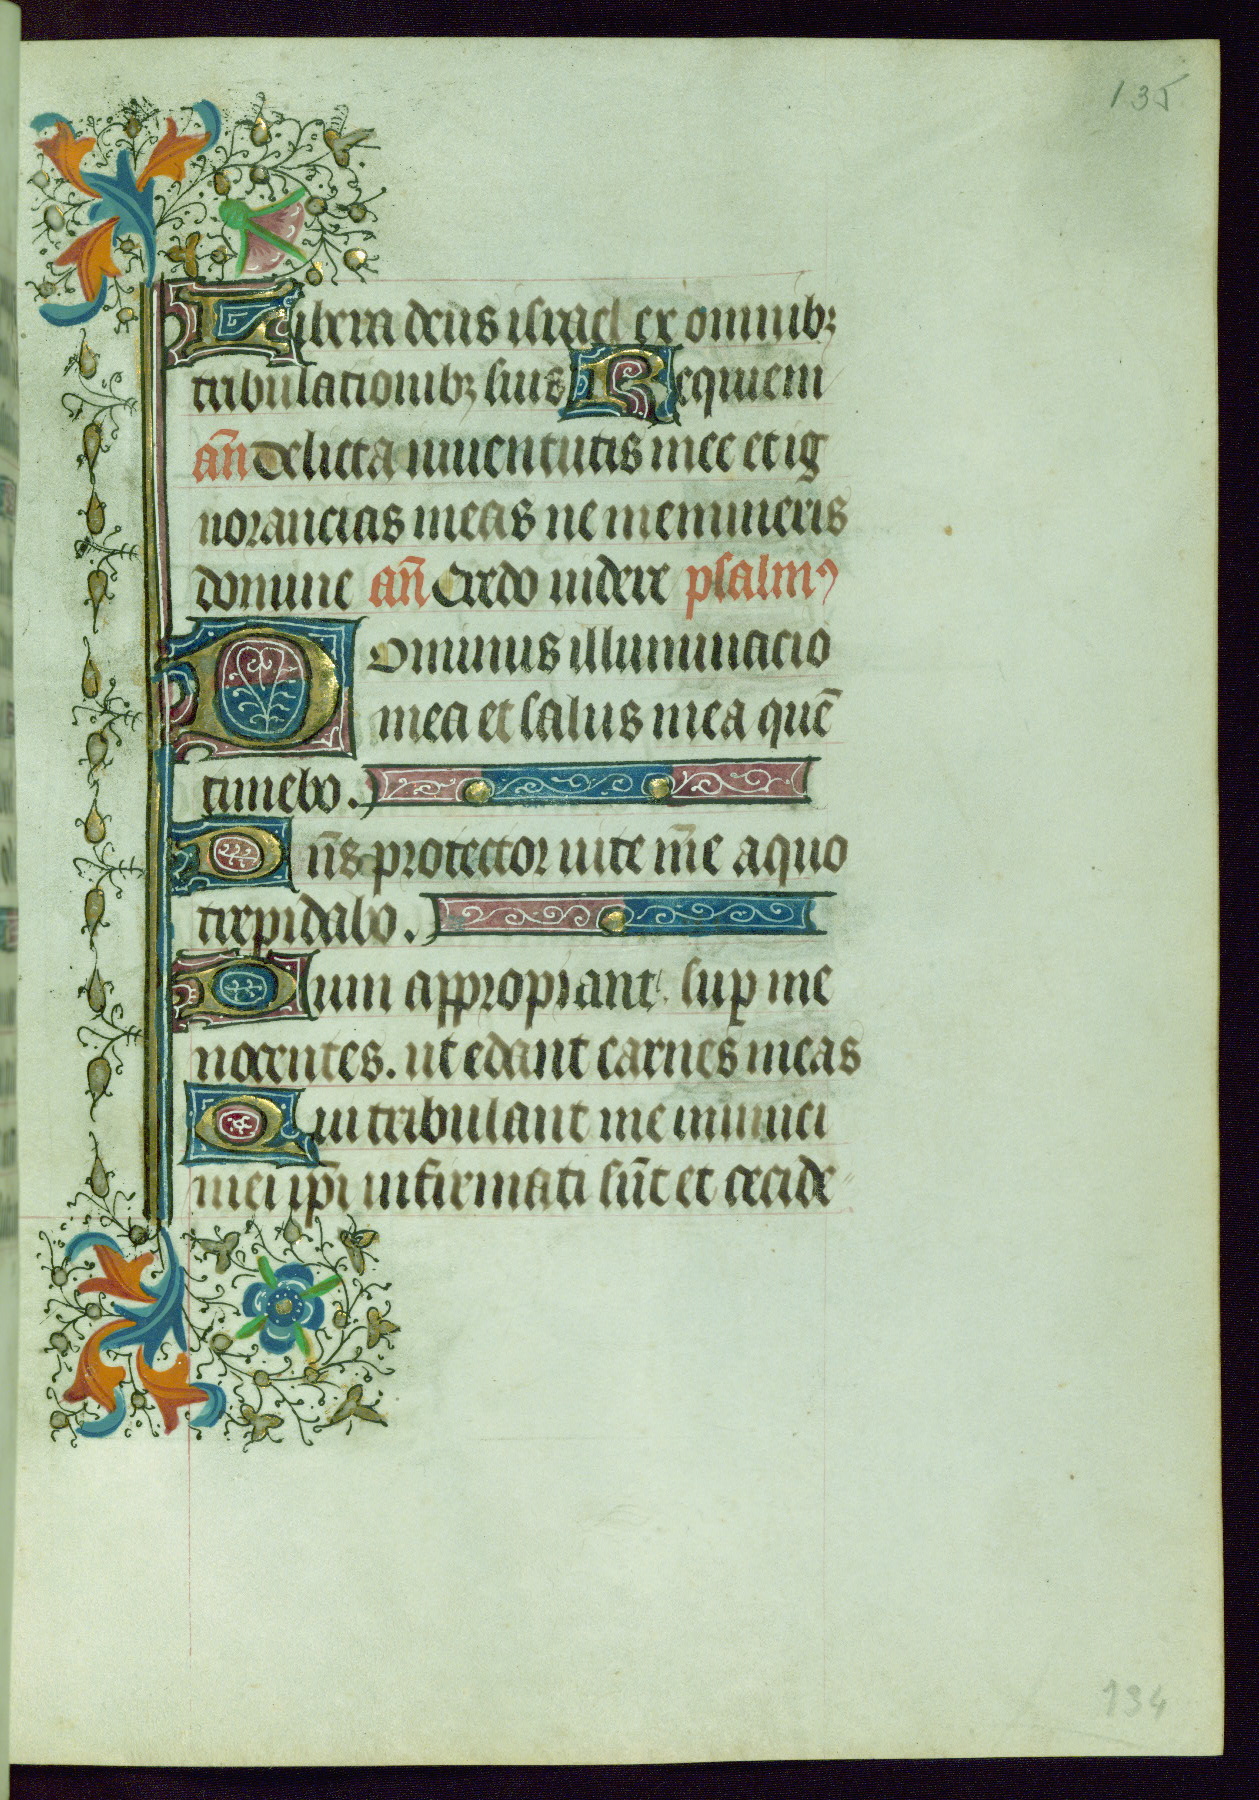 135
Libera deus israel ex omnibꝫ
tribulationibꝫ suis Requiem
an̄ Delicta iuuentutis mee et ig
norancias meas ne memineris
domine an̄ Credo uidere psalmꝰ
Dominus illuminacio
mea et salus mea quē
timebo.
Dn̄s protector uite mēe a quo
trepidabo.
Dum appropiant sup̱ me
nocentes. ut edant carnes meas
Qui tribulant me inimici
mei ip̄i infirmati sūt et cecide
134